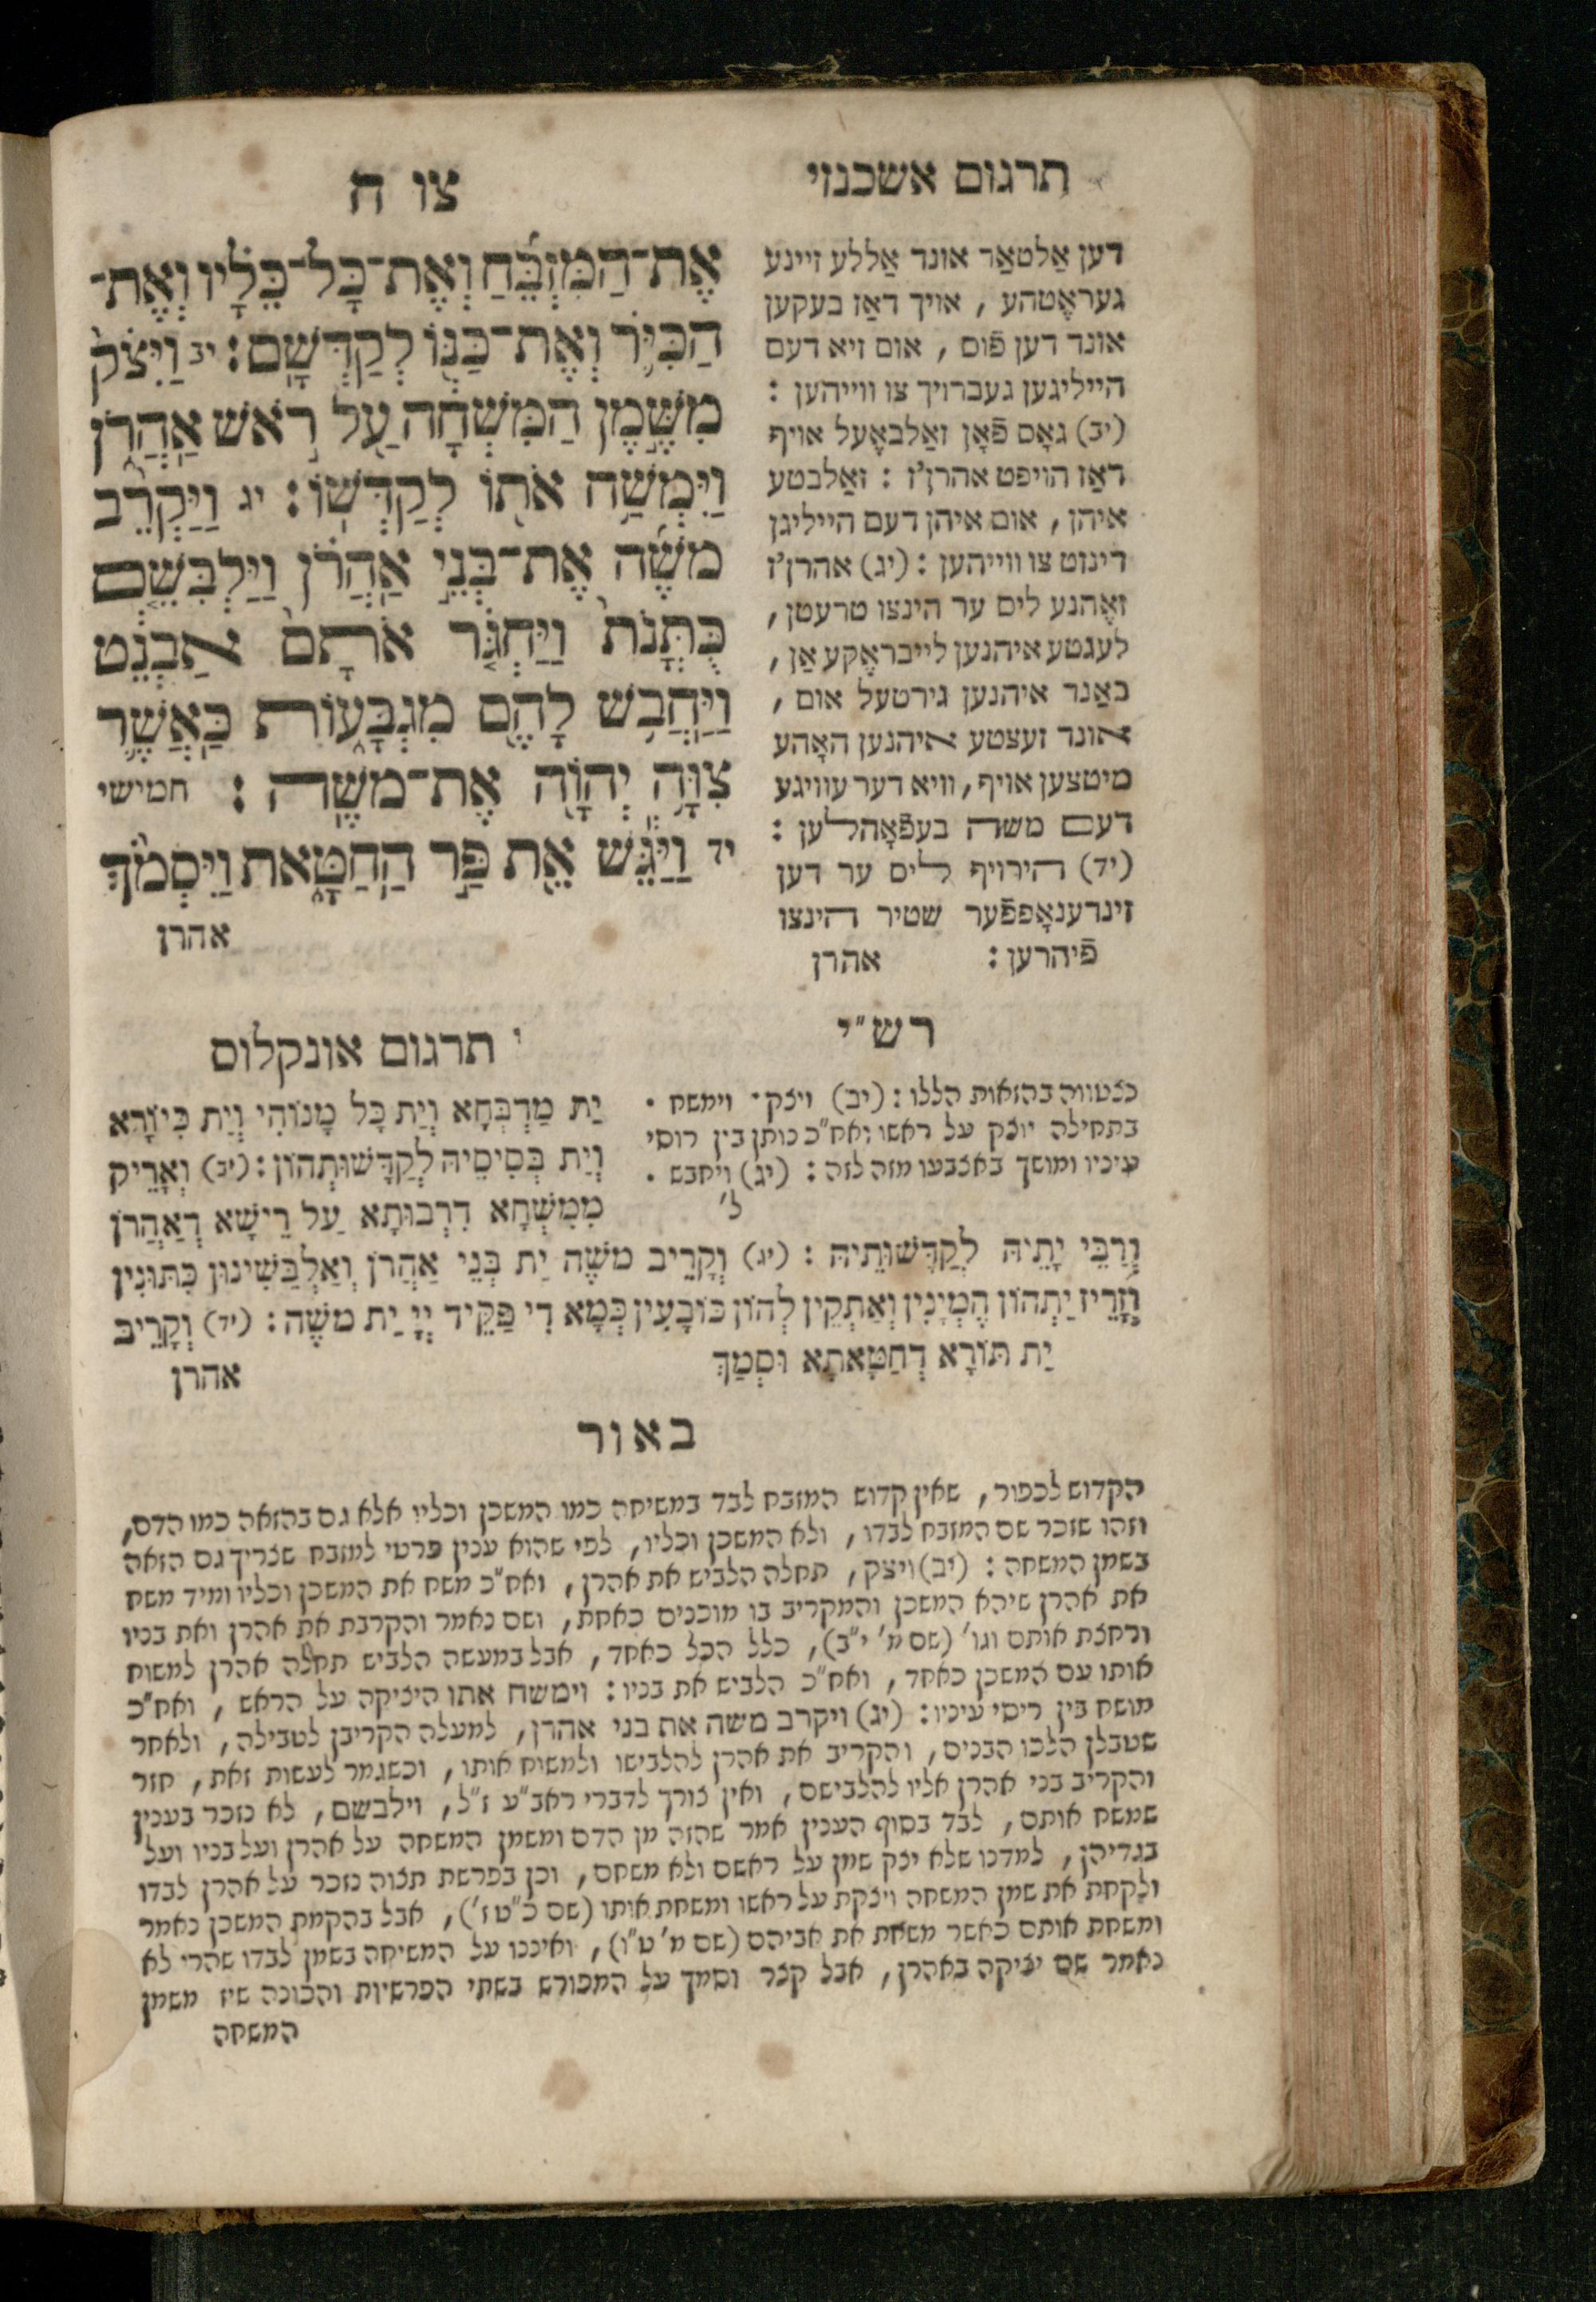 תרגום אשכנזי
צו ח
דען אַלטאַר אונד אַללע זיינע
געראֶטהע , אויך דאַז בעקען
אונד דען פֿוס , אום זיא דעם
הייליגען געברויך צו ווייהען :
(יב) גאָס פֿאָן זאַלבאֶעל אויף
דאַז הויפט אהרן'ז : זאַלבטע
איהן , אום איהן דעם הייליגן
דינזט צו ווייהען : (יג) אהרן'ז
זאֶהנע ליס ער הינצו טרעטן ,
לעגטע איהנען לייבראֶקע אַן ,
באַנד איהנען גירטעל אום ,
אונד זעצטע איהנען האָהע
מיטצען אויף , וויא דער עוויגע
דעם משה בעפֿאָהלען :
(יד) הירויף ליס ער דען
זינדענאָפפֿער שטיר הינצו
פֿיהרען : אהרן
אֶת־הַמִּזְבֵּ֜חַ וְאֶת־כָּל־כֵּלָ֗יו וְאֶת־
הַכִּיֹּ֛ר וְאֶת־כַּנּ֖וֹ לְקַדְּשָֽׁם : יב וַיִּצֹק֙
מִשֶּׁ֣מֶן הַמִּשְׁחָ֔ה עַ֖ל רֹ֣אשׁ אַֽהֲרֹ֑ן
וַיִּמְשַׁ֥ח אֹת֖וֹ לְקַדְּשֽׁוֹ : יג וַיַּקְרֵ֨ב
מֹשֶׁ֜ה אֶת־בְּנֵ֣י אַֽהֲרֹ֗ן וַיַּלְבִּשֵׁ֤ם
כֻּתֳּנֹת֙ וַיַּחְגֹּ֤ר אֹתָם֙ אַבְנֵ֔ט
וַיַּֽחֲבֹ֥שׁ לָהֶ֖ם מִגְבָּע֑וֹת כַּֽאֲשֶׁ֛ר
צִוָּ֥ה יְהוָֹ֖ה אֶת־מֹשֶֽׁה : חמישי
יד וַיַּגֵּ֕שׁ אֵ֖ת פַּ֣ר הַֽחַטָּ֑את וַיִּסְמֹ֨ךְ
אהרן
רש"י
כצטווה בהזאות הללו : (יב) ויצק · וימשח ·
בתחילה יוצק על ראשו ואח"כ נותן בין רוסי
עיניו ומושך באצבעו מזה לזה : (יג) ויחבש ·
ל'
תרגום אונקלוס
יַת מַדְבְּחָא וְיַת כָּל מָנוֹהִי וְיַת כִּיוֹרָא
וְיַת בְּסִיסֵיהּ לְקַדָּשׁוּתְהוֹן : (יב) וְאָרֵיק
מִמִּשְׁחָא דִרְבוּתָא עַל רֵישָׁא דְאַהֲרֹן
וְרַבֵּי יָתֵיהּ לְקַדָּשׁוּתֵיהּ : (יג) וְקָרֵיב משֶׁה יַת בְּנֵי אַהֲרֹן וְאַלְבַּשִׁינוּן כִּתּוּנִין
וְזָרֵיז יַתְהוֹן הֶמְיָנִין וְאַתְקֵין לְהוֹן כּוֹבָעִין כְּמָא דִי פַּקֵּיד יְיָ יַת משֶׁה : (יד) וְקָרֵיב
יַת תּוֹרָא דְחַטָּאתָא וּסְמַךְ
אהרן
באור
הקדוש לכפור , שאין קדוש המזבח לבד במשיחה כמו המשכן וכליו אלא גם בהזאה כמו הדם ,
וזהו שזכר שם המזבח לבדו , ולא המשכן וכליו , לפי שהוא ענין פרטי למזבח שצריך גם הזאה
בשמן המשחה : (יב) ויצק , תחלה הלביש את אהרן , ואח"כ משח את המשכן וכליו ומיד משח
את אהרן שיהא המשכן והמקריב בו מוכנים כאחת , ושם נאמר והקרבת את אהרן ואת בניו
ורחצת אותם וגו' (שם מ' י"ב) , כלל הכל כאחד , אבל במעשה הלביש תחלה אהרן למשוח
אותו עם המשכן כאחד , ואח"כ הלביש את בניו : וימשח אתו היציקה על הראש , ואח"כ
מושח בין ריסי עיניו : (יג) ויקרב משה את בני אהרן , למעלה הקריבן לטבילה , ולאחר
שטבלן הלכו הבנים , והקריב את אהרן להלבישו ולמשוח אותו , וכשגמר לעשות זאת , חזר
והקריב בני אהרן אליו להלבישם , ואין צורך לדברי ראב"ע ז"ל , וילבשם , לא נזכר בענין
שמשח אותם , לבד בסוף הענין אמר שהזה מן הדם ומשמן המשחה על אהרן ועל בניו ועל
בגדיהן , למדנו שלא יצק שמן על ראשם ולא משחם , וכן בפרשת תצוה נזכר על אהרן לבדו
ולקחת את שמן המשחה ויצקת על ראשו ומשחת אותו (שם כ"ט ז') , אבל בהקמת המשכן נאמר
ומשחת אותם כאשר משחת את אביהם (שם מ' ט"ו) , ואיננו על המשיחה בשמן לבדו שהרי לא
נאמר שם יציקה באהרן , אבל קצר וסמך על המפורש בשתי הפרשיות והכונה שיז משמן
המשחה